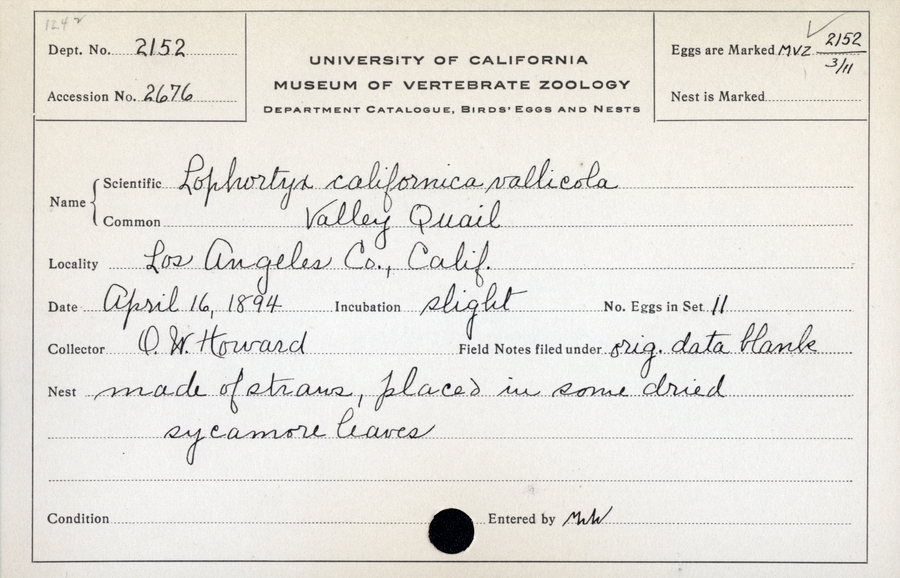 Dept. No. 2152
Accession No. 2676
UNIVERSITY OF CALIFORNIA
MUSEUM OF VERTEBRATE ZOOLOGY
DEPARTMENT CATALOGUE, BIRDS' EGGS AND NESTS
Eggs are Marked MVZ 2152
3/11
Nest is Marked
Name
Scientific Lophortyx californica vallicola
Common Valley Quail
Locality Los Angeles Co., Calif.
Date April 16, 1894 Incubation slight No. Eggs in Set 11
Collector O. W. Howard Field Notes filed under orig. data blank
Nest made of straws, placed in some dried
sycamore leaves
Condition Entered by